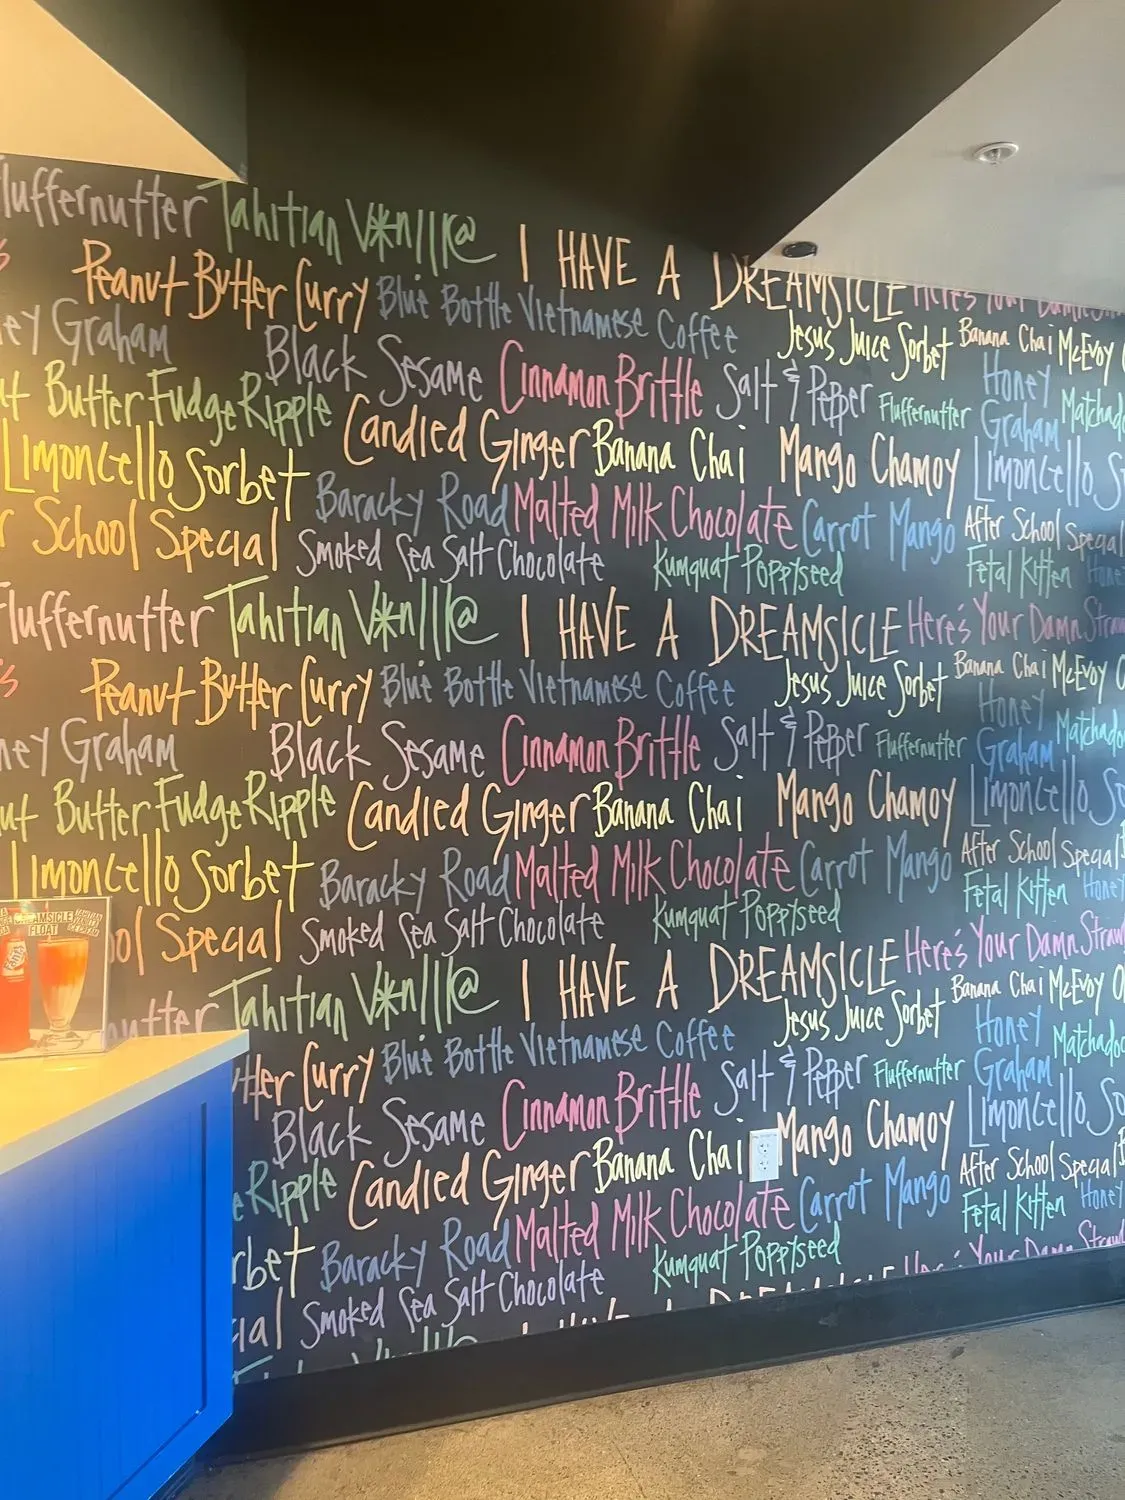 Fluffernutter Tahitian V*n/ll@ I HAVE A DREAMSICLE Here's Your Damn
Peanut Butter Curry Blue Bottle Vietnamese Coffee Jesus Juice Sorbet Banana Chai McEvoy
Graham Black Sesame Cinnamon Brittle Salt & Pepper Fluffernutter Honey Graham
Butter Fudge Ripple Candied Ginger Banana Chai Mango Chamoy Limoncello
Limoncello Sorbet Baracky Road Malted Milk Chocolate Carrot Mango After School Special
School Special Smoked Sea Salt Chocolate Kumquat Poppyseed Fetal Kitten
Fluffernutter Tahitian V*n/ll@ I HAVE A DREAMSICLE Here's Your Damn
Peanut Butter Curry Blue Bottle Vietnamese Coffee Jesus Juice Sorbet Banana Chai McEvoy
Graham Black Sesame Cinnamon Brittle Salt & Pepper Fluffernutter Honey Graham
Butter Fudge Ripple Candied Ginger Banana Chai Mango Chamoy Limoncello
Limoncello Sorbet Baracky Road Malted Milk Chocolate Carrot Mango After School Special
Special Smoked Sea Salt Chocolate Kumquat Poppyseed Fetal Kitten Honey
FLOAT
Tahitian V*n/ll@ I HAVE A DREAMSICLE Here's Your Damn
Curry Blue Bottle Vietnamese Coffee Jesus Juice Sorbet Banana Chai McEvoy
Black Sesame Cinnamon Brittle Salt & Pepper Fluffernutter Honey Graham
Ripple Candied Ginger Banana Chai Mango Chamoy Limoncello
Baracky Road Malted Milk Chocolate Carrot Mango After School Special
Smoked Sea Salt Chocolate Kumquat Poppyseed Fetal Kitten Honey
Your Damn